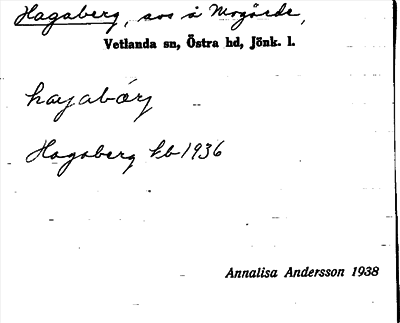 Hagaberg, avs å Mogärde,
Vetlanda sn, Östra hd, Jönk. l.
hagabärj
Hagaberg kb 1936
Annalisa Andersson 1938